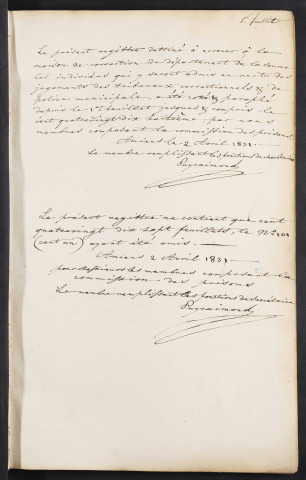 1er feuillet
Le présent registre destiné à écrouer à la
maison de correction du département de la Somme
les individus qui y seront admis en vertu des
jugements des tribunaux correctionnels & de
police municipale, a été coté & paraphé
depuis le 1er feuillet jusques & compris le
cent quatrevingt dix huitième, par nous
membres composant la commission des prisons.
Amiens le 2 Avril 1831
Le membre remplissant les fonctions de secrétaire
Puyraimond
Le présent registre ne contient que cent
quatrevingt dix sept feuillets, le No 101
(cent un) ayant été omis.
Amiens 2 Avril 1831
pour les membres composant la
commission des prisons
Le membre remplissant les fonctions de Secrétaire
Puyraimond